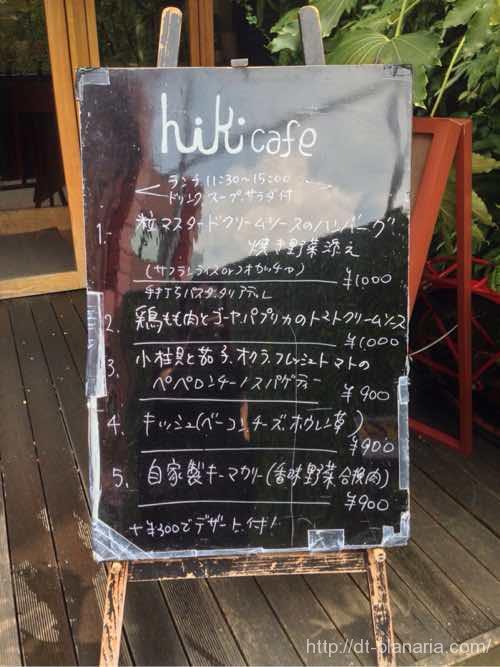 hiki cafe
ランチ 11:30〜15:00
ドリンク・スープ・サラダ付
1. 粒マスタードクリームソースのハンバーグ
焼き野菜添え
(サフランライスorフォカッチャ)
¥1000
手打ちパスタ・タリアテレ
2. 鶏もも肉とゴーヤ、パプリカのトマトクリームソース
¥1000
3. 小柱貝と茄子、オクラ、フレッシュトマトの
ペペロンチーノスパゲティー
¥900
4. キッシュ(ベーコン、チーズ、ホウレン草)
¥900
5. 自家製キーマカリー(香味野菜、合挽肉)
¥900
+¥300でデザート付!
http://dt-planaria.com/